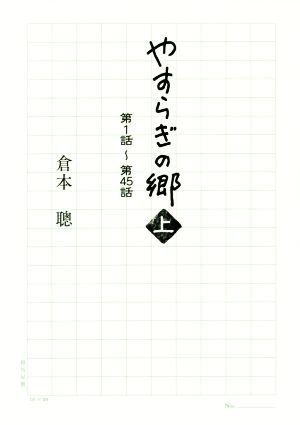 やすらぎの郷
上
第1話~第45話
倉本 聰
No.